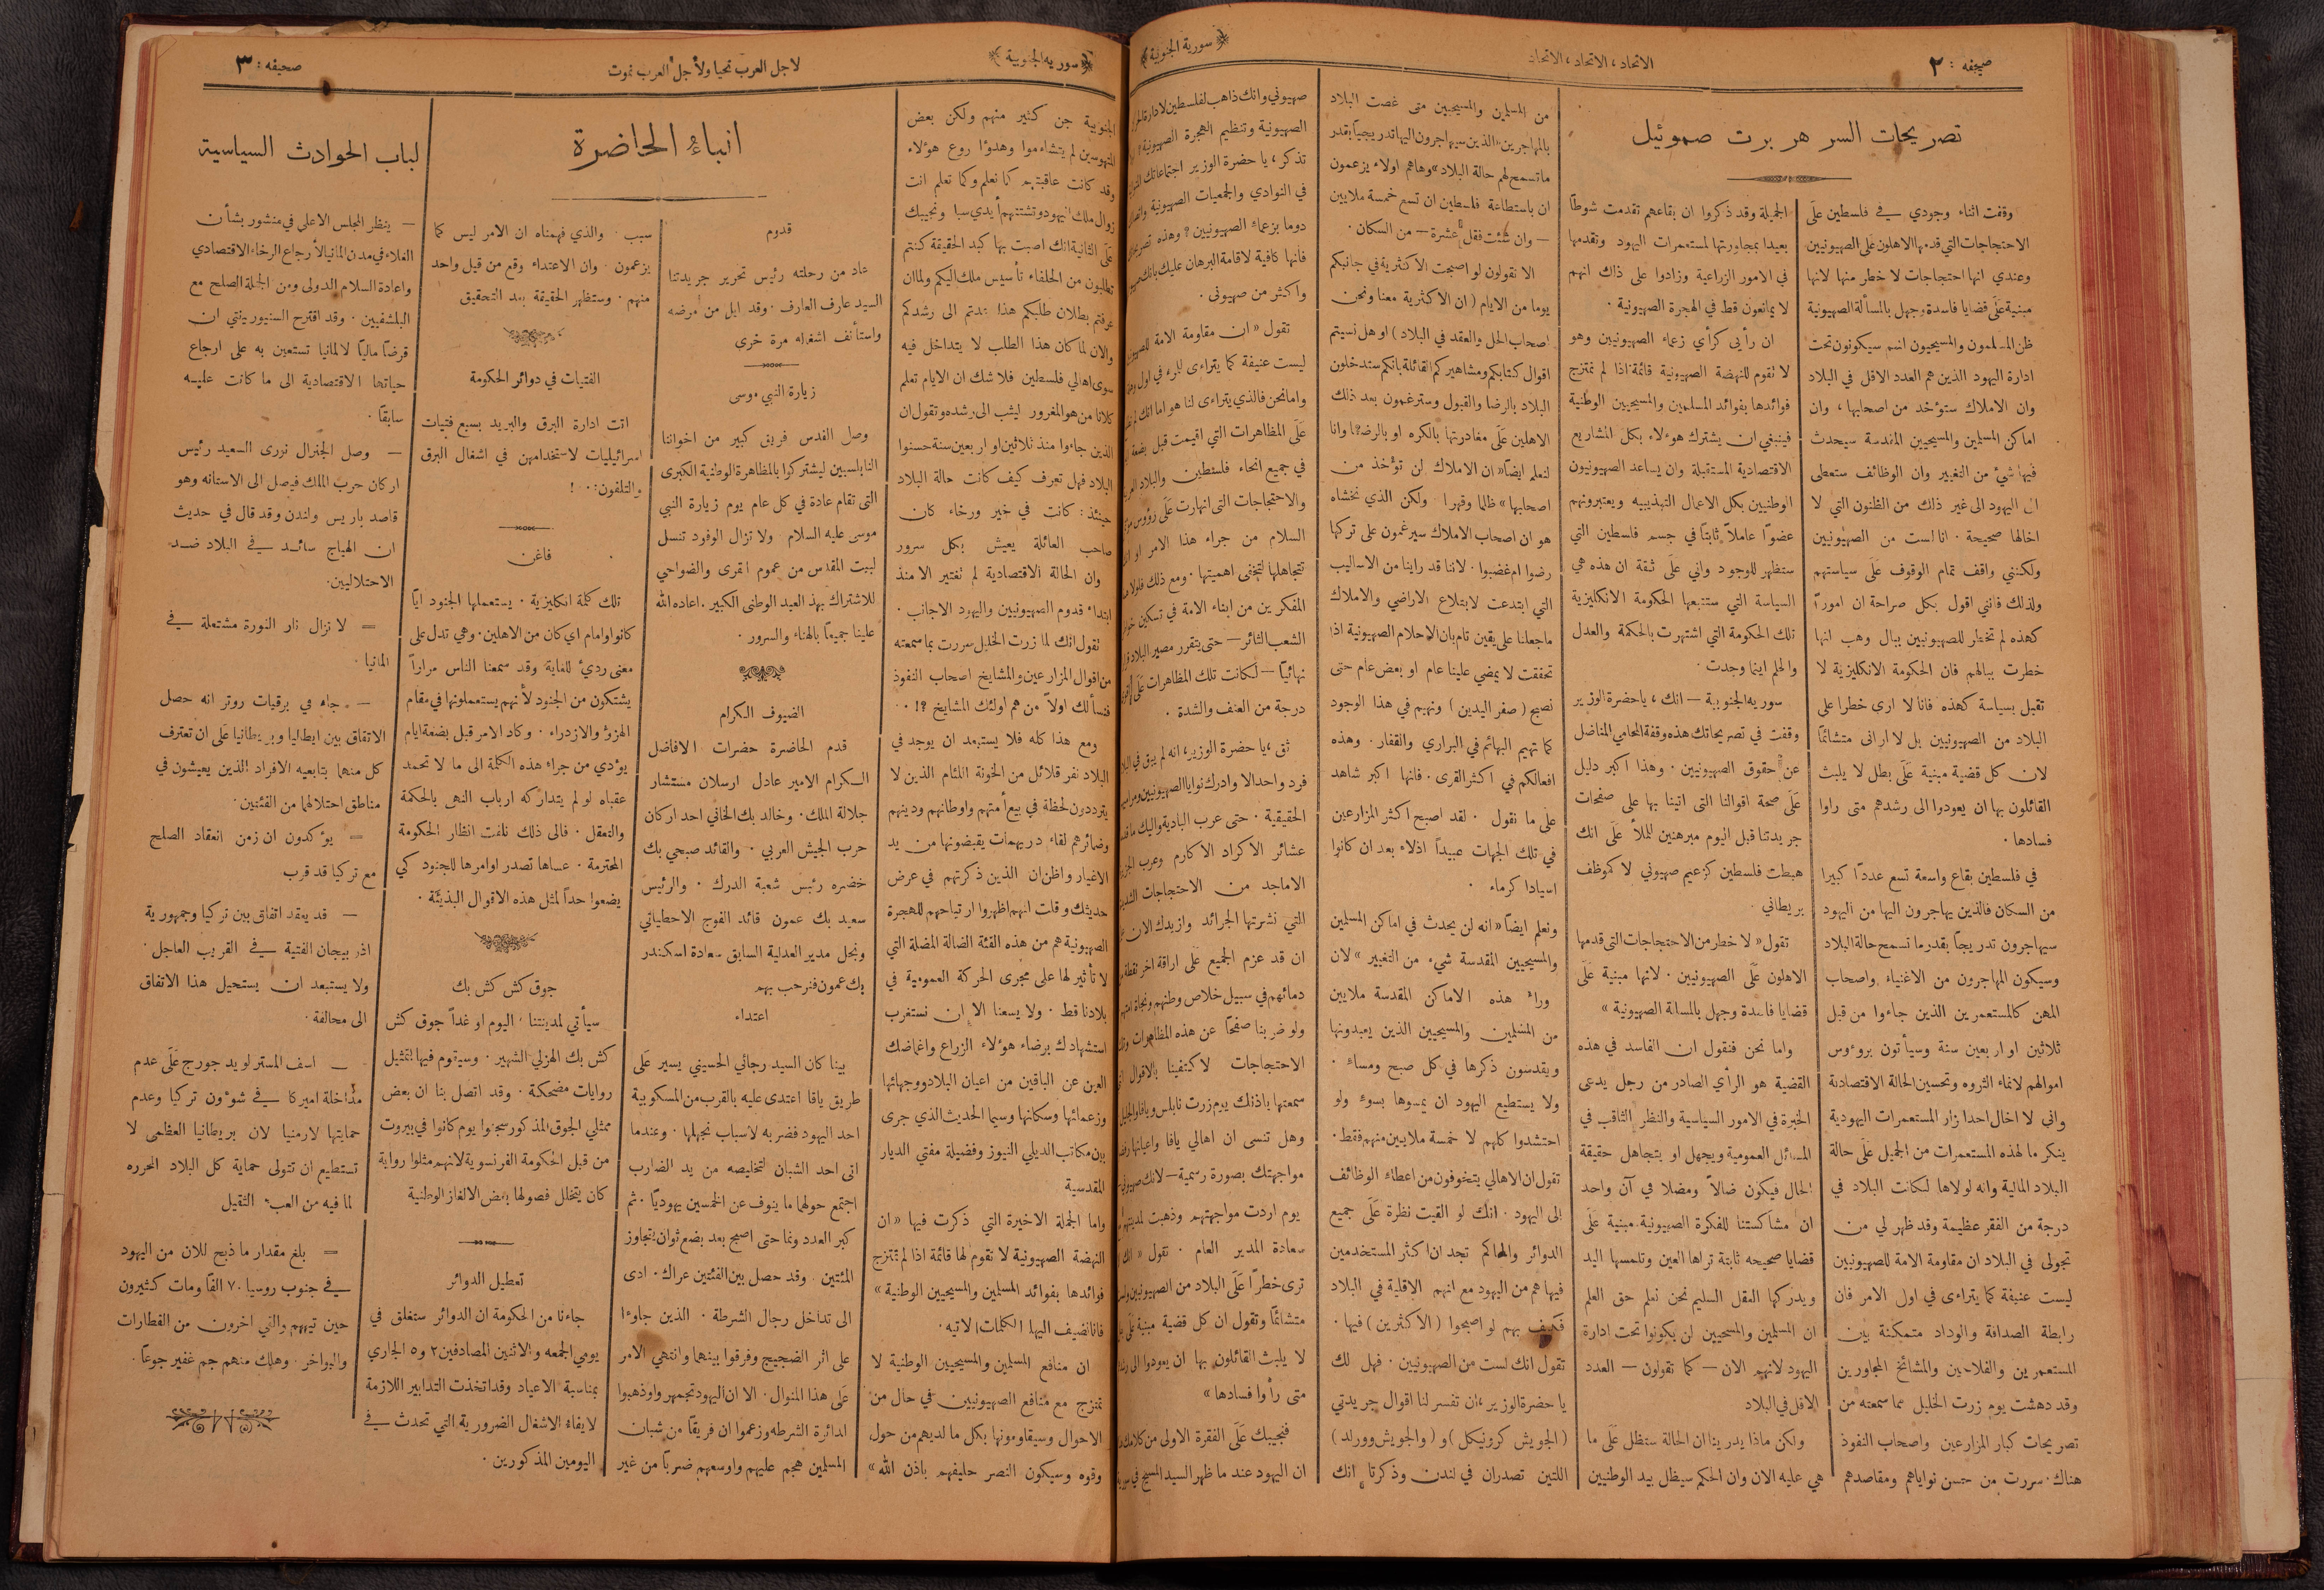 صحيفه : ٢
الاتحاد ، الاتحاد ، الاتحاد
﴿ سورية الجنوبية ﴾
تصريحات السر هربرت صموئيل
وقفت اثناء وجودي في فلسطين على
الاحتجاجات التي قدمها الاهلون على الصهيونيين
وعندي انها احتجاجات لا خطر منها لانها
مبنية على قضايا فاسدة وجهل بالمسألة الصهيونية
ظن المسلمون والمسيحيون انهم سيكونون تحت
ادارة اليهود الذين هم العدد الاقل في البلاد
وان الاملاك ستؤخد من اصحابها ، وان
اماكن المسلمين والمسيحيين المقدسة سيحدث
فيها شيء من التغيير وان الوظائف ستعطى
الى اليهود الى غير ذلك من الظنون التي لا
اخالها صحيحة . انا لست من الصهيونيين
ولكنني واقف تمام الوقوف على سياستهم
ولذلك فانني اقول بكل صراحة ان اموراً
كهذه لم تخطر للصهيونيين ببال وهب انها
خطرت ببالهم فان الحكومة الانكليزية لا
تقبل بسياسة كهذه فانا لا ارى خطرا على
البلاد من الصهيونيين بل لا اراني متشائماً
لان كل قضية مبنية على بطل لا يلبث
القائلون بها ان يعودوا الى رشدهم متى راوا
فسادها .
في فلسطين بقاع واسعة تسع عدداً كبيرا
من السكان فالذين يهاجرون اليها من اليهود
سيهاجرون تدريجاً بقدر ما تسمح حالة البلاد
وسيكون المهاجرون من الاغنياء واصحاب
المهن كالمستعمرين الذين جاءوا من قبل
ثلاثين او اربعين سنة وسيأتون برؤوس
اموالهم لانماء الثروه وتحسين الحالة الاقتصادية
واني لا اخال احدا زار المستعمرات اليهودية
ينكر ما لهذه المستعمرات من الجميل على حالة
البلاد المالية وانه لولاها لكانت البلاد في
درجة من الفقر عظيمة وقد ظهر لي من
تجولى في البلاد ان مقاومة الامة للصهيونيين
ليست عنيفة كما يتراءى في اول الامر فان
رابطة الصداقة والوداد متمكنة بين
المستعمرين والفلاحين والمشائخ المجاورين
وقد دهشت يوم زرت الخليل مما سمعته من
تصريحات كبار المزارعين واصحاب النفوذ
هناك . سررت من حسن نواياهم ومقاصدهم
الجميلة وقد ذكروا ان بقاعهم تقدمت شوطاً
بعيدا بمجاورتها لمستعمرات اليهود وتقدمها
في الامور الزراعية وزادوا على ذلك انهم
لا يمانعون قط في الهجرة الصهيونية .
ان رأيي كرأي زعماء الصهيونيين وهو
لا تقوم للنهضة الصهيونية قائمة اذا لم تمتزج
فوائدها بفوائد المسلمين والمسيحيين الوطنية
فينبغي ان يشترك هؤلاء بكل المشاريع
الاقتصادية المستقبلة وان يساعد الصهيونيون
الوطنيين بكل الاعمال التهذيبيه ويعتبرونهم
عضوا عاملاً ثابتاً في جسم فلسطين التي
ستظهر للوجود واني على ثقة ان هذه هي
السياسة التي ستتبعها الحكومة الانكليزية
تلك الحكومة التي اشتهرت بالحكمة والعدل
والحلم اينما وجدت .
سوريه الجنوبية — انك ، يا حضرة الوزير
وقفت في تصريحاتك هذه وقفة المحامي المناضل
عن حقوق الصهيونيين . وهذا اكبر دليل
على صحة اقوالنا التى اتينا بها على صفحات
جريدتنا قبل اليوم مبرهنين للملأ على انك
هبطت فلسطين كزعيم صهيوني لا كموظف
بريطاني .
تقول « لا خطر من الاحتجاجات التى قدمها
الاهلون على الصهيونيين . لانها مبنية على
قضايا فاسدة وجهل بالمسالة الصهيونية »
واما نحن فنقول ان الفاسد في هذه
القضية هو الرأي الصادر من رجل يدعى
الخبرة في الامور السياسية والنظر الثاقب في
المسائل العمومية ويجهل او يتجاهل حقيقة
الحال فيكون ضالاً ومضلا في آن واحد
ان مشاكستنا للفكرة الصهيونية . مبنية على
قضايا صحيحه ثابتة تراها العين وتلمسها اليد
ويدركها العقل السليم نحن نعلم حق العلم
ان المسلمين والمسحيين لن يكونوا تحت ادارة
اليهود لانهم الان — كما تقولون — العدد
الاقل في البلاد
ولكن ماذا يدرينا ان الحالة ستظل على ما
هي عليه الان وان الحكم سيظل بيد الوطنيين
من المسلمين والمسيحيين متى غصت البلاد
بالمهاجرين « الذين سيهاجرون اليها تدريجيا بقدر
ما تسمح لهم حالة البلاد » وهاهم اولاء يزعمون
ان باستطاعة فلسطين ان تسع خمسة ملايين
— وان شئت فقل عشرة — من السكان .
الا تقولون لو اصبحت الاكثرية في جانبكم
يوما من الايام ( ان الاكثرية معنا ونحن
اصحاب الحل والعقد في البلاد ) او هل نسيتم
اقوال كتابكم ومشاهيركم القائلة بانكم ستدخلون
البلاد بالرضا والقبول وسترغمون بعد ذلك
الاهلين على مغادرتها بالكره او بالرضى وانا
لنعلم ايضاً « ان الاملاك لن تؤخذ من
اصحابها » ظلما وقهرا . ولكن الذي نخشاه
هو ان اصحاب الاملاك سيرغمون على تركها
رضوا ام غضبوا . لاننا قد راينا من الاساليب
التي ابتدعت لابتلاع الاراضي والاملاك
ما جعلنا على يقين تام بان الاحلام الصهيونية اذا
تحققت لا يمضي علينا عام او بعض عام حتى
نصبح ( صفر اليدين ) ونهيم في هذا الوجود
كما تهيم البهائم في البراري والقفار . وهذه
افعالكم في اكثر القرى . فانها اكبر شاهد
على ما نقول . لقد اصبح اكثر المزارعين
في تلك الجهات عبيداً اذلاء بعد ان كانوا
اسيادا كرماء .
ونعلم ايضاً « انه لن يحدث في اماكن المسلمين
والمسيحيين المقدسة شيء من التغيير » لان
وراء هذه الاماكن المقدسة ملايين
من المسلمين والمسيحيين الذين يعبدونها
ويقدسون ذكرها في كل صبح ومساء .
ولا يستطيع اليهود ان يمسوها بسوء ولو
احتشدوا كلهم لا خمسة ملايين منهم فقط .
تقول ان الاهالي يتخوفون من اعطاء الوظائف
إلى اليهود . انك لو القيت نظرة على جميع
الدوائر والمحاكم تجد ان اكثر المستخدمين
فيها هم من اليهود مع انهم الاقلية في البلاد
فكيف بهم لو اصبحوا ( الاكثرين ) فيها .
تقول انك لست من الصهيونيين . فهل لك
يا حضرة الوزير ، ان تفسر لنا اقوال جريدتي
( الجويش كرونيكل ) و ( والجويش وورلد )
اللتين تصدران في لندن وذكرتا انك
صهيوني وانك ذاهب لفلسطين لادارة
الصهيونية وتنظيم الهجرة الصهيونية ؟
تذكر ، يا حضرة الوزير اجتماعاتك
في النوادي والجمعيات الصهيونية
دوما بزعماء الصهيونيين ؟ وهذه
فانها كافية لاقامة البرهان عليك بانك
واكثر من صهيونى .
تقول « ان مقاومة الامة
ليست عنيفة كما يتراءى للمرء في اول
واما نحن فالذي يتراءى لنا هو اما انك لم
على المظاهرات التي اقيمت قبل بضعة
في جميع انحاء فلسطين والبلاد
والاحتجاجات التى انهارت على رؤوس
السلام من جراء هذا الامر او
تتجاهلها لتخفى اهميتها . ومع ذلك فلولا
المفكرين من ابناء الامة في تسكين
الشعب الثائر — حتى يتقرر مصير البلاد
نهائيا — لكانت تلك المظاهرات على
درجة من العنف والشدة .
ثق ، يا حضرة الوزير ، انه لم يبق في
فرد واحد الا وادرك نوايا الصهيونيين
الحقيقية . حتى عرب البادية واليك
عشائر الاكراد الاكارم وعرب
الاماجد من الاحتجاجات
التي نشرتها الجرائد وازيدك الان
ان قد عزم الجميع على اراقة اخر نقطة
دمائهم في سبيل خلاص وطنهم ونجاة
ولو ضربنا صفحاً عن هذه المظاهرات
الاحتجاجات لاكتفينا بالاقوال
سمعتها باذنك يوم زرت نابلس ويافا
وهل تنسى ان اهالي يافا واعيانها
مواجهتك بصورة رسمية — لانك
يوم اردت مواجهتهم وذهبت
سعادة المدير العام . تقول «
ترى خطراً على البلاد من الصهيونيين
متشائماً وتقول ان كل قضية مبنية على
لا يلبث القائلون بها ان يعودوا الى
متى رأوا فسادها »
فنجيبك على الفقرة الاولى من كلامك
ان اليهود عند ما ظهر السيد المسيح في
﴿ سوريه الجنوبية ﴾
لاجل العرب نحيا ولأجل العرب نموت
صحيفه : ٣
الجنوبية جن كثير منهم ولكن بعض
المتهوسين لم يتشاءموا وهدؤا روع هؤلاء
وقد كانت عاقبتهم كما نعلم وكما تعلم انت
زوال ملك اليهود وتشتتهم أيدي سبا ونجيبك
على الثانية انك اصبت بها كبد الحقيقة كنتم
تطلبون من الخلفاء تأسيس ملك اليكم ولما ان
عرفتم بطلان طلبكم هذا عدتم الى رشدكم
والان لما كان هذا الطلب لا يتداخل فيه
سوى اهالي فلسطين فلا شك ان الايام تعلم
كلانا من هو المغرور ليثب الى رشده وتقول ان
الذين جاءوا منذ ثلاثين او اربعين سنة حسنوا
البلاد فهل تعرف كيف كانت حالة البلاد
حينئذ : كانت في خير ورخاء كان
صاحب العائلة يعيش بكل سرور
وان الحالة الاقتصادية لم تغتير الا منذ
ابتداء قدوم الصهيونيين واليهود الاجانب .
تقول انك لما زرت الخليل سررت بما سمعته
من اقوال المزارعين والمشايخ اصحاب النفوذ
فنسألك اولاً من هم اولئك المشايخ ؟! .
ومع هذا كله فلا يستبعد ان يوجد في
البلاد نفر قلائل من الخونة اللئام الذين لا
يترددون لحظة في بيع أمتهم واوطانهم ودينهم
وضمائرهم لقاء دريهمات يقبضونها من يد
الاغيار واظن ان الذين ذكرتهم في عرض
حديثك وقلت انهم اظهروا ارتياحهم للهجرة
الصهيونية هم من هذه الفئة الضالة المضلة التي
لا تأثير لها على مجرى الحركة العمومية في
بلادنا قط . ولا يسعنا الا ان نستغرب
استشهادك برضاء هؤلاء الزراع واغماضك
العين عن الباقين من اعيان البلاد ووجهائها
وزعمائها وسكانها وسيما الحديث الذي جرى
بين مكاتب الديلي النيوز وفضيلة مفتي الديار
المقدسية
واما الجملة الاخيرة التي ذكرت فيها « ان
النهضة الصهيونية لا تقوم لها قائمة اذا لم تمتزج
فوائدها بفوائد المسلمين والمسيحيين الوطنية »
فانا نضيف اليها الكلمات الاتيه .
ان منافع المسلمين والمسيحيين الوطنية لا
تمتزج مع منافع الصهيونيين في حال من
الاحوال وسيقاومونها بكل ما لديهم من حول
وقوه وسيكون النصر حليفهم باذن الله »
انباء الحاضرة
قدوم
عاد من رحلته رئيس تحرير جريدتنا
السيد عارف العارف . وقد ابل من مرضه
واستأنف اشغاله مرة خرى
زيارة النبي موسى
وصل القدس فريق كبير من اخواننا
النابلسيين ليشتركوا بالمظاهرة الوطنية الكبرى
التى تقام عادة في كل عام يوم زيارة النبي
موسى عليه السلام . ولا تزال الوفود تنسل
لبيت المقدس من عموم القرى والضواحي
للاشتراك بهذ العيد الوطنى الكبير . اعاده الله
علينا جميعاً بالهناء والسرور .
الضيوف الكرام
قدم الحاضرة حضرات الافاضل
الكرام الامير عادل ارسلان مستشار
جلالة الملك . وخالد بك الخاني احد اركان
حرب الجيش العربي . والقائد صبحي بك
خضره رئيس شعبة الدرك . والرئيس
سعيد بك عمون قائد الفوج الاحطياتي
ونجل مدير العدلية السابق سعادة اسكندر
بك عمون فنرحب بهم
اعتداء
بينا كان السيد رجائي الحسيني يسير على
طريق يافا اعتدى عليه بالقرب من المسكوبية
احد اليهود فضربه لاسباب نجهلها . وعندما
اتى احد الشبان لتخليصه من يد الضارب
اجتمع حولهما ما ينوف عن الخمسين يهوديا . ثم
كبر العدد ونما حتى اصبح بعد بضع ثوان يتجاوز
المئتين . وقد حصل بين الفئتين عراك . ادى
الى تداخل رجال الشرطة . الذين جاوءا
على اثر الضجيج وفرقوا بينهما وانتهي الامر
على هذا المنوال . الا ان اليهود تجمهروا وذهبوا
لدائرة الشرطه وزعموا ان فريقاً من شبان
المسلمين هجم عليهم واوسعهم ضربا من غير
سبب . والذي فهمناه ان الامر ليس كما
يزعمون . وان الاعتداء وقع من قبل واحد
منهم . وستظهر الحقيقة بعد التحقيق
الفتيات في دوائر الحكومة
اتت ادارة البرق والبريد بسبع فتيات
اسرائيليات لاستخدامهن في اشغال البرق
والتلفون : . !
فاغن
تلك كلمة انكليزية . يستعملها الجنود ايا
كانوا وامام اي كان من الاهلين . وهي تدل على
معنى رديء للغاية وقد سمعنا الناس مراراً
يشتكون من الجنود لأنهم يستعملونها في مقام
الهزؤ والازدراء . وكاد الامر قبل بضعة ايام
يؤدي من جراء هذه الكلمة الى ما لا تحمد
عقباه لو لم يتداركه ارباب النهى بالحكمة
والتعقل . فالى ذلك نلفت انظار الحكومة
المحترمة . عساها تصدر اوامرها للجنود كي
يضعوا حداً لمثل هذه الاقوال البذيئة .
جوق كش كش بك
سيأتي لمدينتنا اليوم او غداً جوق كش
كش بك الهزلي الشهير . وسيقوم فيها بتمثيل
روايات مضحكة . وقد اتصل بنا ان بعض
ممثلي الجوق المذكور سجنوا يوم كانوا في بيروت
من قبل الحكومة الفرنسوية لانهم مثلوا رواية
كان يتخلل فصولها بعض الالغاز الوطنية
تعطيل الدوائر
جاءنا من الحكومة ان الدوائر ستغلق في
يومي الجمعه والاثنين المصادفين ٢ و٥ الجاري
بمناسبة الاعياد وقد اتخذت التدابير اللازمة
لايفاء الاشغال الضرورية التي تحدث في
اليومين المذكورين .
لباب الحوادث السياسية
— ينظر المجلس الاعلى في منشور بشأن
الغلاء في مدن المانيا لأرجاع الرخاء الاقتصادي
واعادة السلام الدولى ومن الجملة الصلح مع
البلشفيين . وقد اقترح السنيور ينتي ان
قرضاً مالياً لالمانيا تستعين به على ارجاع
حياتها الاقتصادية الى ما كانت عليه
سابقاً .
— وصل الجنرال نورى السعيد رئيس
اركان حرب الملك فيصل الى الاستانه وهو
قاصد باريس ولندن وقد قال في حديث
ان الهياج سائد في البلاد ضد
الاحتلاليين .
= لا تزال نار الثورة مشتعلة في
المانيا .
— جاء في برقيات روتر انه حصل
الاتفاق بين ايطاليا وبريطانيا على ان تعترف
كل منهما بتابعيه الافراد الذين يعيشون في
مناطق احتلالهما من الفئتين .
= يؤكدون ان زمن انعقاد الصلح
مع تركيا قد قرب
— قد يعقد اتفاق بين تركيا وجمهورية
اذربيجان الفتية في القريب العاجل .
ولا يستبعد ان يستحيل هذا الاتفاق
الى محالفة .
— اسف المستر لويد جورج على عدم
مداخلة اميركا في شؤون تركيا وعدم
حمايتها لارمنيا لان بريطانيا العظمى لا
تستطيع ان تتولى حماية كل البلاد المحرره
لما فيه من العبء الثقيل
= بلغ مقدار ما ذبح للان من اليهود
في جنوب روسيا ٧٠ الفاً ومات كثيرون
حين تيههم والقي اخرون من القطارات
والبواخر . وهلك منهم جم غفير جوعاً .